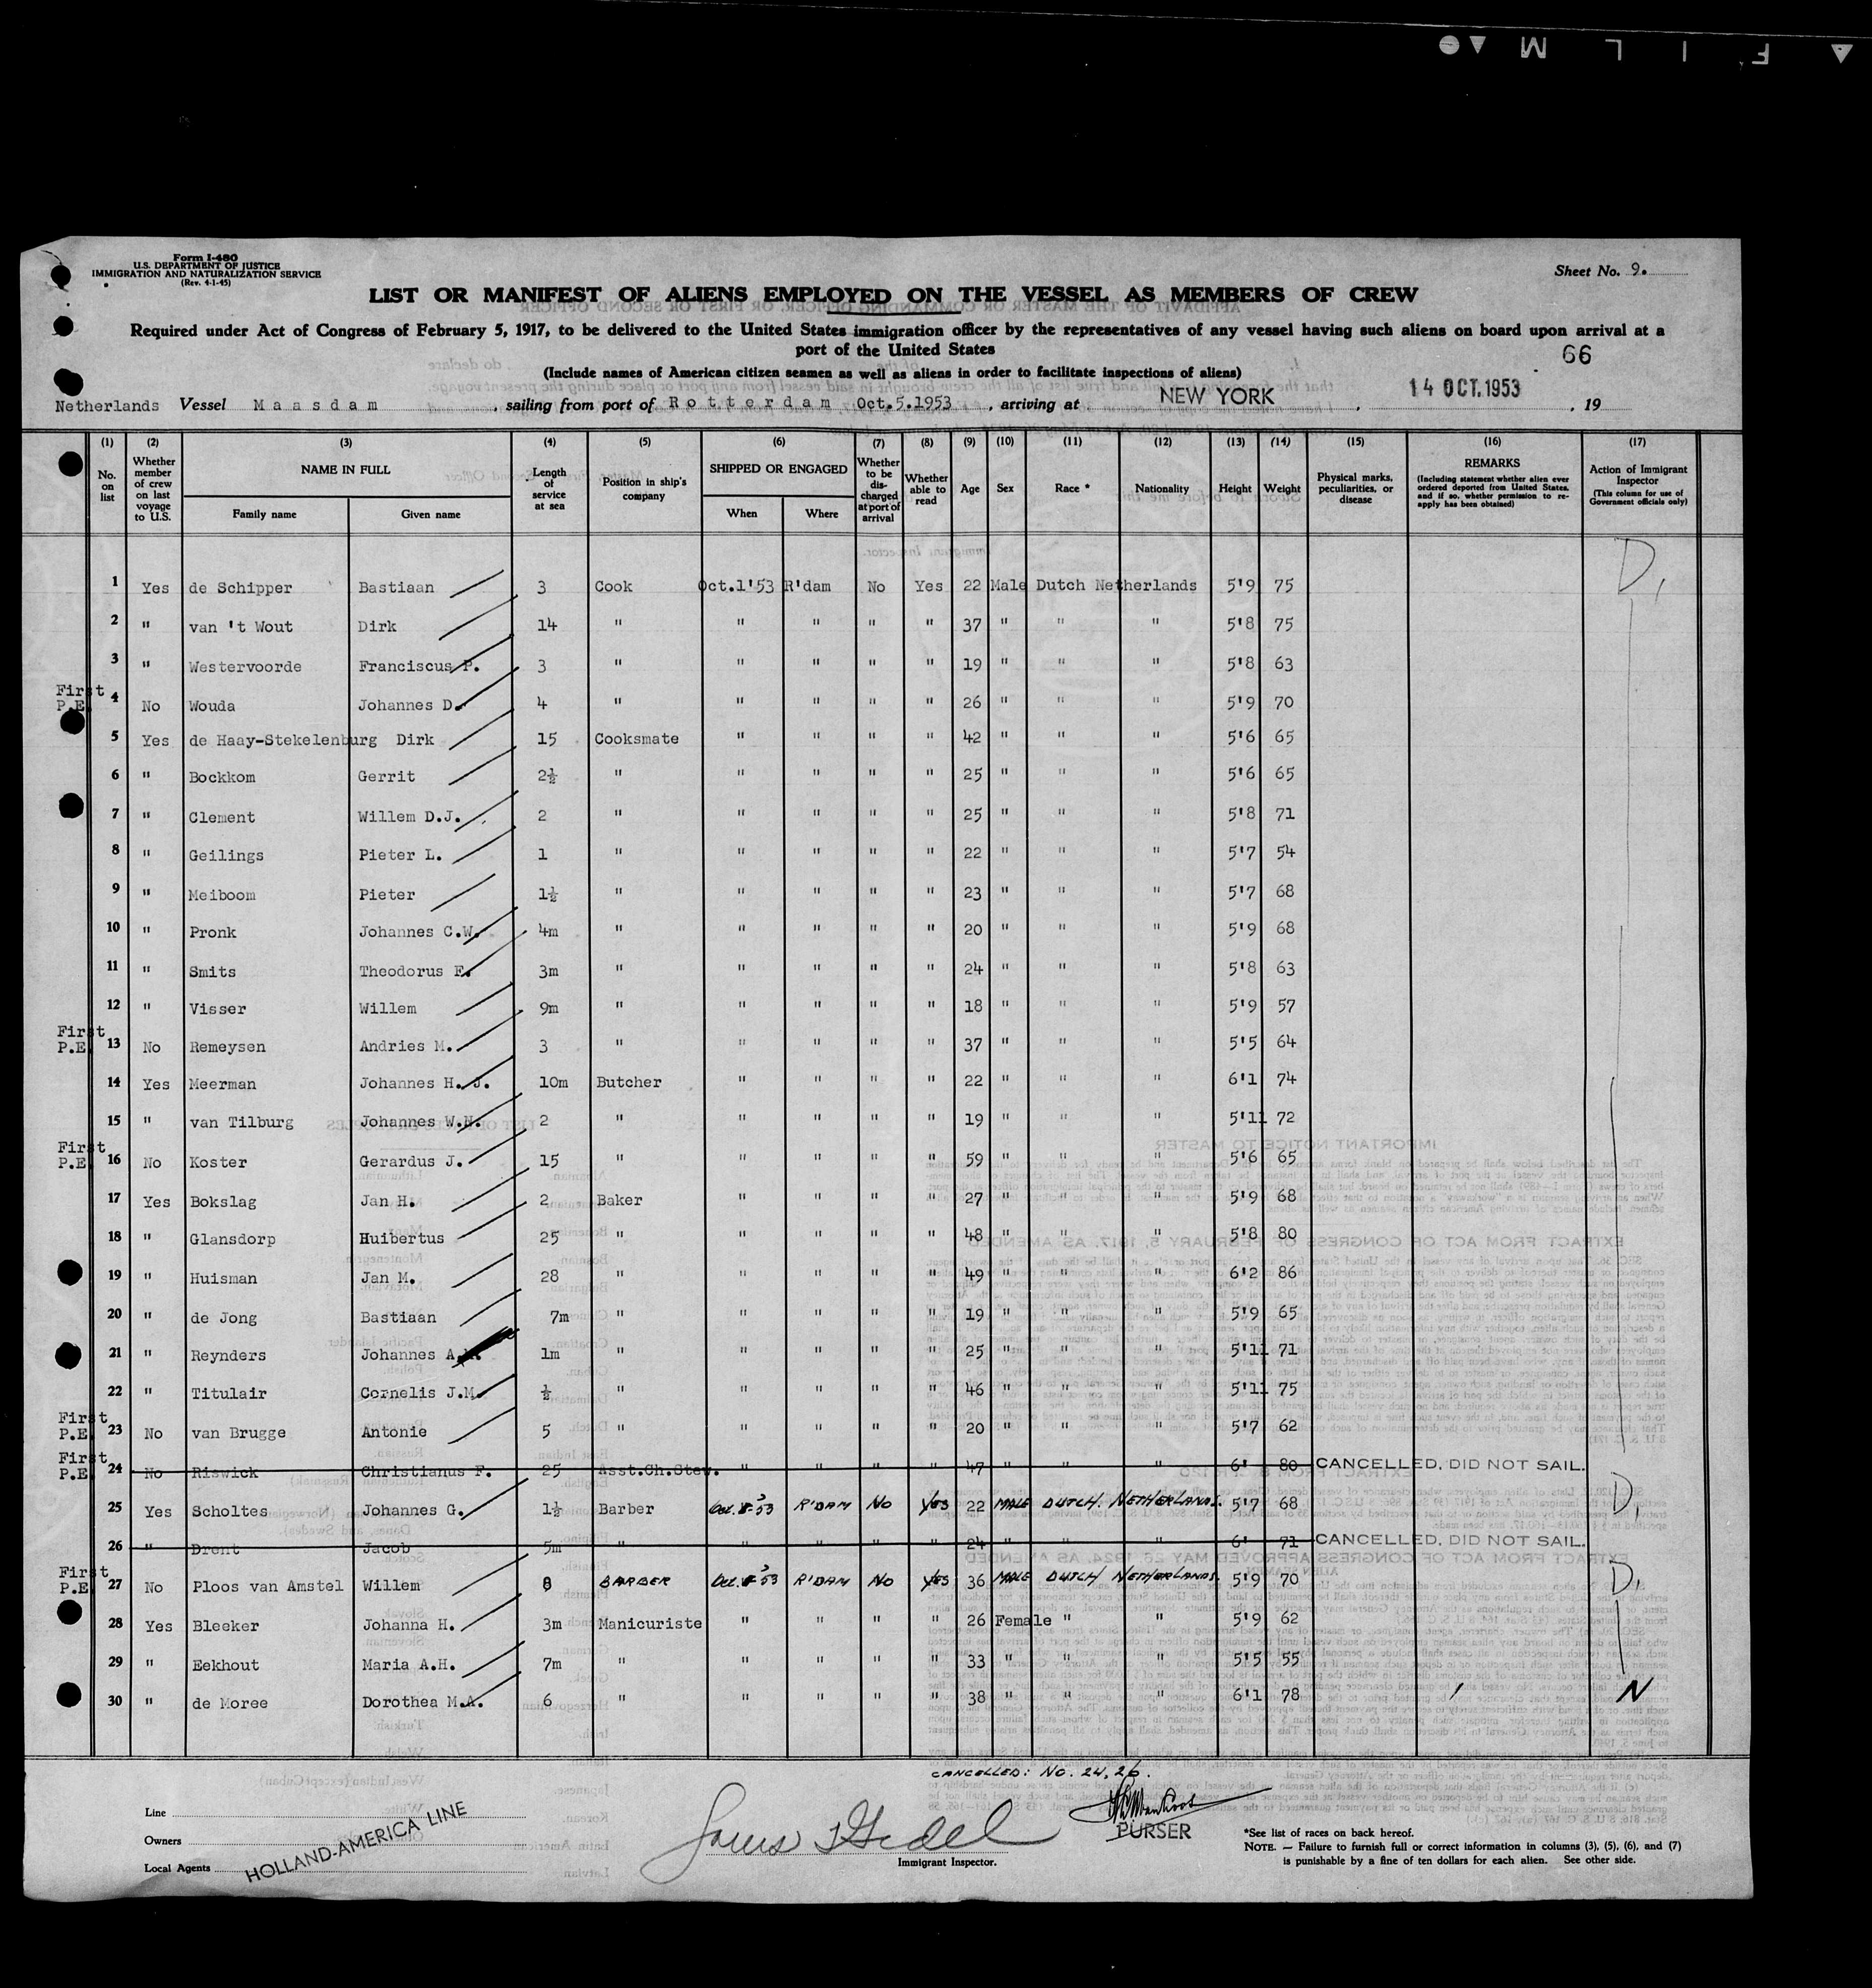 FILM
Form I-480
U.S. DEPARTMENT OF JUSTICE
IMMIGRATION AND NATURALIZATION SERVICE
(Rev. 4-1-45)
Sheet No. 9.
LIST OR MANIFEST OF ALIENS EMPLOYED ON THE VESSEL AS MEMBERS OF CREW
Required under Act of Congress of February 5, 1917, to be delivered to the United States immigration officer by the representatives of any vessel having such aliens on board upon arrival at a
port of the United States
66
(Include names of American citizen seamen as well as aliens in order to facilitate inspections of aliens)
Netherlands Vessel Maasdam, sailing from port of Rotterdam Oct.5.1953, arriving at NEW YORK, 14 OCT.1953, 19
(1) (2) (3) (4) (5) (6) (7) (8) (9) (10) (11) (12) (13) (14) (15) (16) (17)
No. on list
Whether member of crew on last voyage to U.S.
NAME IN FULL
Family name Given name
Length of service at sea
Position in ship's company
SHIPPED OR ENGAGED
When Where
Whether to be discharged at port of arrival
Whether able to read
Age
Sex
Race *
Nationality
Height
Weight
Physical marks, peculiarities, or disease
REMARKS
(Including statement whether alien ever ordered deported from United States, and if so, whether permission to re-apply has been obtained)
Action of Immigrant Inspector
(This column for use of Government officials only)
1 Yes de Schipper Bastiaan 3 Cook Oct.1'53 R'dam No Yes 22 Male Dutch Netherlands 5'9 75 D,
2 " van 't Wout Dirk 14 " " " " " 37 " " " 5'8 75
3 " Westervoorde Franciscus P. 3 " " " " " 19 " " " 5'8 63
First P.E. 4 No Wouda Johannes D. 4 " " " " " 26 " " " 5'9 70
5 Yes de Haay-Stekelenburg Dirk 15 Cooksmate " " " " 42 " " " 5'6 65
6 " Bockkom Gerrit 2½ " " " " " 25 " " " 5'6 65
7 " Clement Willem D.J. 2 " " " " " 25 " " " 5'8 71
8 " Geilings Pieter L. 1 " " " " " 22 " " " 5'7 54
9 " Meiboom Pieter 1½ " " " " " 23 " " " 5'7 68
10 " Pronk Johannes C.W. 4m " " " " " 20 " " " 5'9 68
11 " Smits Theodorus E. 3m " " " " " 24 " " " 5'8 63
12 " Visser Willem 9m " " " " " 18 " " " 5'9 57
First P.E. 13 No Remeysen Andries M. 3 " " " " " 37 " " " 5'5 64
14 Yes Meerman Johannes H. J. 10m Butcher " " " " 22 " " " 6'1 74
15 " van Tilburg Johannes W.N. 2 " " " " " 19 " " " 5'11 72
First P.E. 16 No Koster Gerardus J. 15 " " " " " 59 " " " 5'6 65
17 Yes Bokslag Jan H. 2 Baker " " " " 27 " " " 5'9 68
18 " Glansdorp Huibertus 25 " " " " " 48 " " " 5'8 80
19 " Huisman Jan M. 28 " " " " " 49 " " " 6'2 86
20 " de Jong Bastiaan 7m " " " " " 19 " " " 5'9 65
21 " Reynders Johannes A. 1m " " " " " 25 " " " 5'11 71
22 " Titulair Cornelis J.M. ½ " " " " " 46 " " " 5'11 75
First P.E. 23 No van Brugge Antonie 5 " " " " " 20 " " " 5'7 62
First P.E. 24 No Riswick Christianus F. 25 Asst.Ch.Stew. " " " " 47 " " " 6' 80 CANCELLED, DID NOT SAIL.
25 Yes Scholtes Johannes G. 1½ Barber R'DAM No YES 22 MALE DUTCH. NETHERLANDS. 5'7 68 D,
26 " Drent Jacob 5m " " " " " 24 " " " 6' 71 CANCELLED, DID NOT SAIL.
First P.E. 27 No Ploos van Amstel Willem 8 BARBER R'DAM No YES 36 MALE DUTCH NETHERLANDS. 5'9 70 D,
28 Yes Bleeker Johanna H. 3m Manicuriste " " " " 26 Female " " 5'9 62
29 " Eekhout Maria A.H. 7m " " " " " 33 " " " 5'5 55
30 " de Moree Dorothea M.A. 6 " " " " " 38 " " " 6'1 78 N
CANCELLED: No. 24, 26.
Line
Owners
Local Agents
HOLLAND-AMERICA LINE
Immigrant Inspector.
PURSER
*See list of races on back hereof.
NOTE. — Failure to furnish full or correct information in columns (3), (5), (6), and (7)
is punishable by a fine of ten dollars for each alien. See other side.